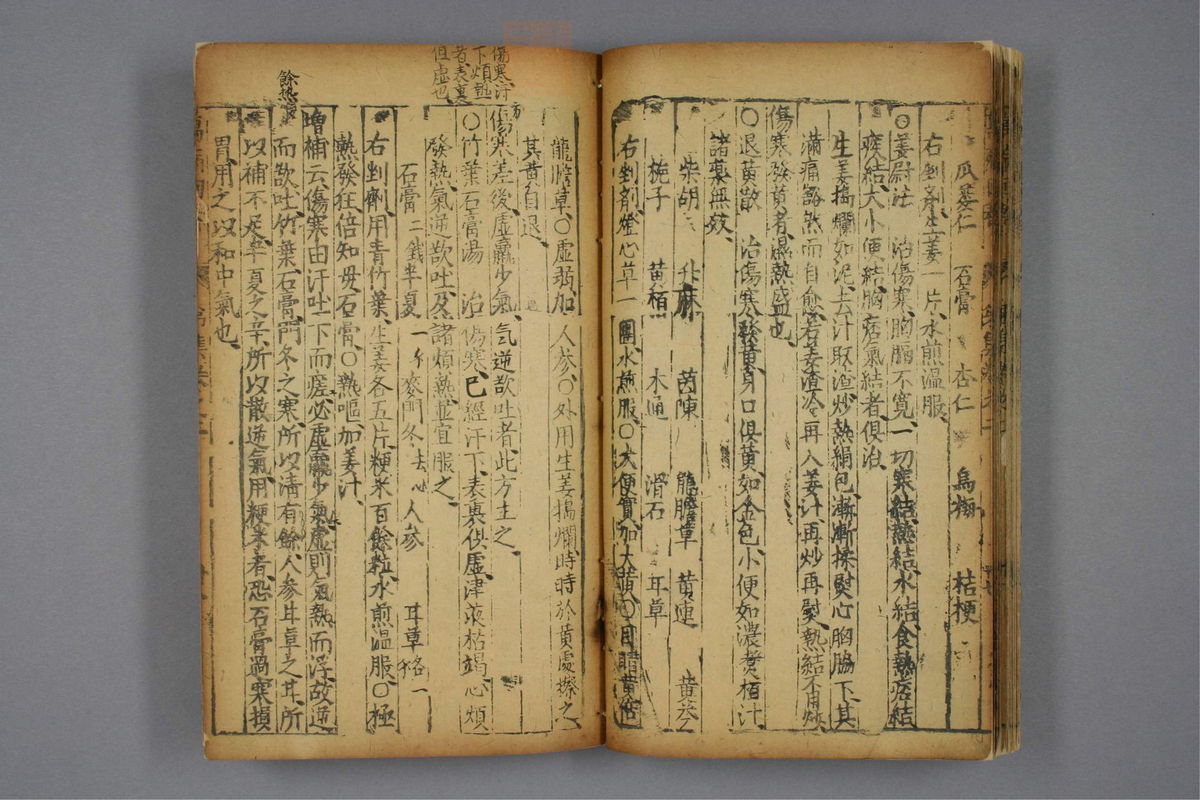 瓜蔞仁　石膏　杏仁　烏梅　桔梗
右剉劑生姜一片水煎温服
○姜尉法　治傷寒胸膈不寬一切寒結熱結水結食熱痞結
痰結大小便結胸痞氣結者俱治
生姜搗爛如泥去汁取渣炒熱絹包漸漸揉熨心胸脇下其
滿痛豁然而自愈若姜渣冷再入姜汁再炒再熨熱結不用炒
傷寒發黄者濕熱盛也
○退黄散　治傷寒發黄身口俱黄如金色小便如濃煑栢汁
諸藥無效
柴胡　升麻　茵陳　龍膽草　黄連　黄芩
梔子　黄栢　木通　滑石　甘草
右剉劑燈心草一團水煎服○大便實加大黄○目睛黄倍
龍膽草○虛弱加人參○外用生姜搗爛時時於黄處擦之
其黄自退
傷寒差後虛羸少氣气逆欬吐者此方主之
○竹葉石膏湯　治傷寒已經汗下表裏俱虛津液枯竭心煩
發熱氣逆欬吐及諸煩熱並宜服之
石膏二錢半夏一个麥門冬去心人參　甘草各一
右剉劑用青竹葉生姜各五片粳米百餘粒水煎温服○極
熱發狂倍知毋石膏○熱嘔加姜汁
增補云傷寒由汗吐下而瘥必虛羸少氣虛則氣熱而浮故逆
而欬吐竹葉石膏門冬之寒所以清有餘人參甘草之甘所
以補不足半夏之辛所以散逆氣用粳米者恐石膏過寒損
胃用之以和中氣也
傷寒汗
下煩熱
者表裏
但虛也
餘熱